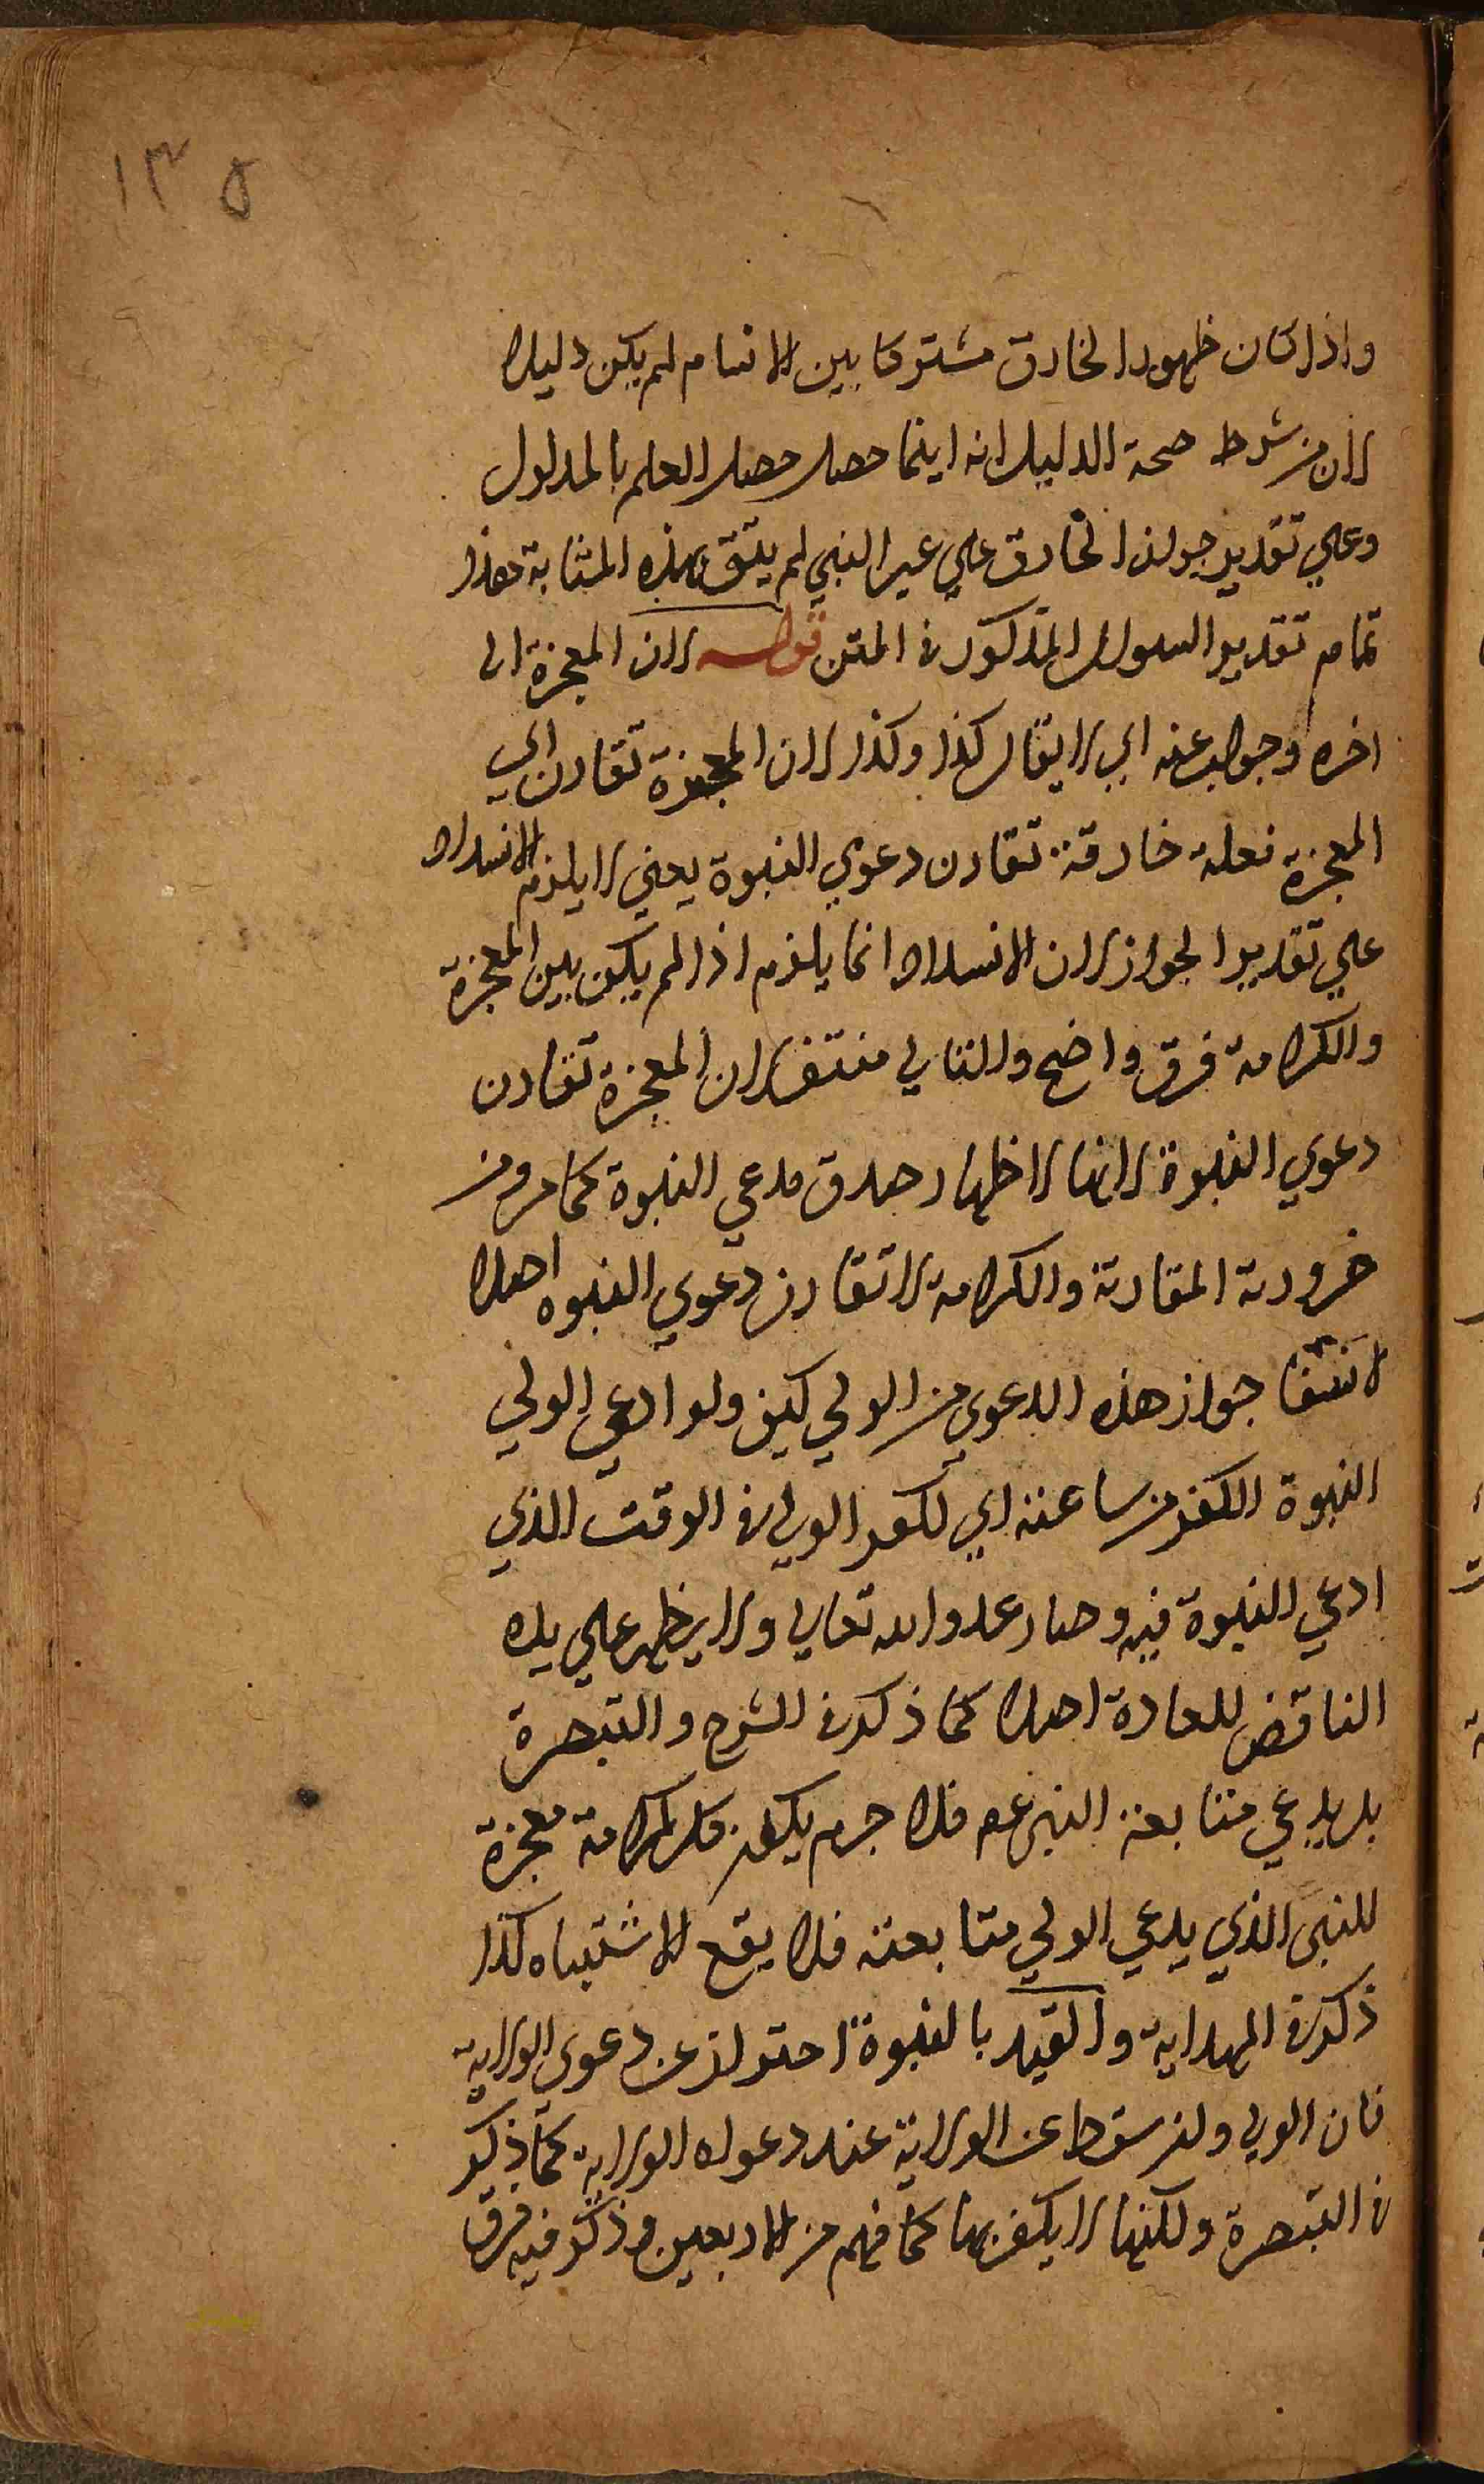 ١٣٥
واذا كان ظهور الخارق مشتركا بين الانام لم يكن دليلا
لان من شرط صحة الدليل انه اينما حصل حصل العلم بالمدلول
وعلي تقدير جواز الخارق علي غير النبي لم يبق بهذه المثابة هذا
تمام تقدير السوال المذكور في المتن قوله لان المعجزة الى
اخره وجواب عنه اي لا يقال كذا وكذا لان المعجزة تقارن اي
المعجزة فعلة خارقة تقارن دعوي النبوة يعني لا يلزم الانسداد
علي تقدير الجواز لان الانسداد انما يلزم اذا لم يكن بين المعجزة
والكرامة فرق واضح والتالي منتف لان المعجزة تقارن
دعوي النبوة لانها لاظهار صدق مدعي النبوة كما مر ومن
ضرورته المقارنة والكرامة لا تقارن دعوي النبوه اصلا
لانتفا جواز هذه الدعوي من الولي كيف ولو ادعي الولي
النبوة الكفر من ساعته اي لكفر الولي في الوقت الذي
ادعي النبوة فيه وصار عدو الله تعالى ولا يظهر علي يده
الناقض للعادة اصلا كما ذكر في الشرح والتبصرة
بل يدعي متابعة النبي عم فلا جرم يكون كل كرامة معجزة
للنبى الذي يدعي الولي متابعته فلا يقع الاشتباه كذا
ذكر في الهداية والقيد بالنبوة احتراز عن دعوى الولاية
فان الولي ولن سقط عن الولاية عند دعواه الولاية كما ذكر
في التبصرة ولكنها لا يكفر بها كما فهم من الاربعين وذكر فيه فرق